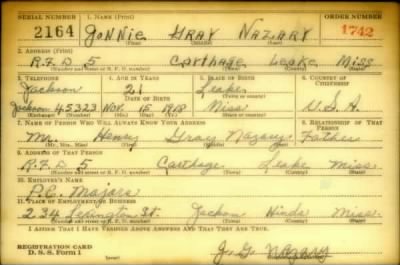 SERIAL NUMBER 1. NAME (Print) ORDER NUMBER
2164 JONNIE GRAY NAZARY 1742
(First) (Middle) (Last)
2. ADDRESS (Print)
R.F.D 5 Carthage Leake Miss
(Number and street or R. F. D. number) (Town) (County) (State)
3. TELEPHONE 4. AGE IN YEARS 5. PLACE OF BIRTH 6. COUNTRY OF CITIZENSHIP
Jackson 21 Leake
DATE OF BIRTH (Town or county)
Jackson 45323 Nov. 15 1918 Miss U.S.A.
(Exchange) (Number) (Mo.) (Day) (Yr.) (State or country)
7. NAME OF PERSON WHO WILL ALWAYS KNOW YOUR ADDRESS 8. RELATIONSHIP OF THAT PERSON
Mr. Henry Gray Nazary Father
(Mr., Mrs., Miss) (First) (Middle) (Last)
9. ADDRESS OF THAT PERSON
R.F.D 5 Carthage Leake Miss.
(Number and street or R. F. D. number) (Town) (County) (State)
10. EMPLOYER'S NAME
P.C. Majors
11. PLACE OF EMPLOYMENT OR BUSINESS
234 Lexington St. Jackson Hinds Miss.
(Number and street or R. F. D. number) (Town) (County) (State)
I AFFIRM THAT I HAVE VERIFIED ABOVE ANSWERS AND THAT THEY ARE TRUE.
REGISTRATION CARD
D. S. S. Form 1 J. G. Nazary